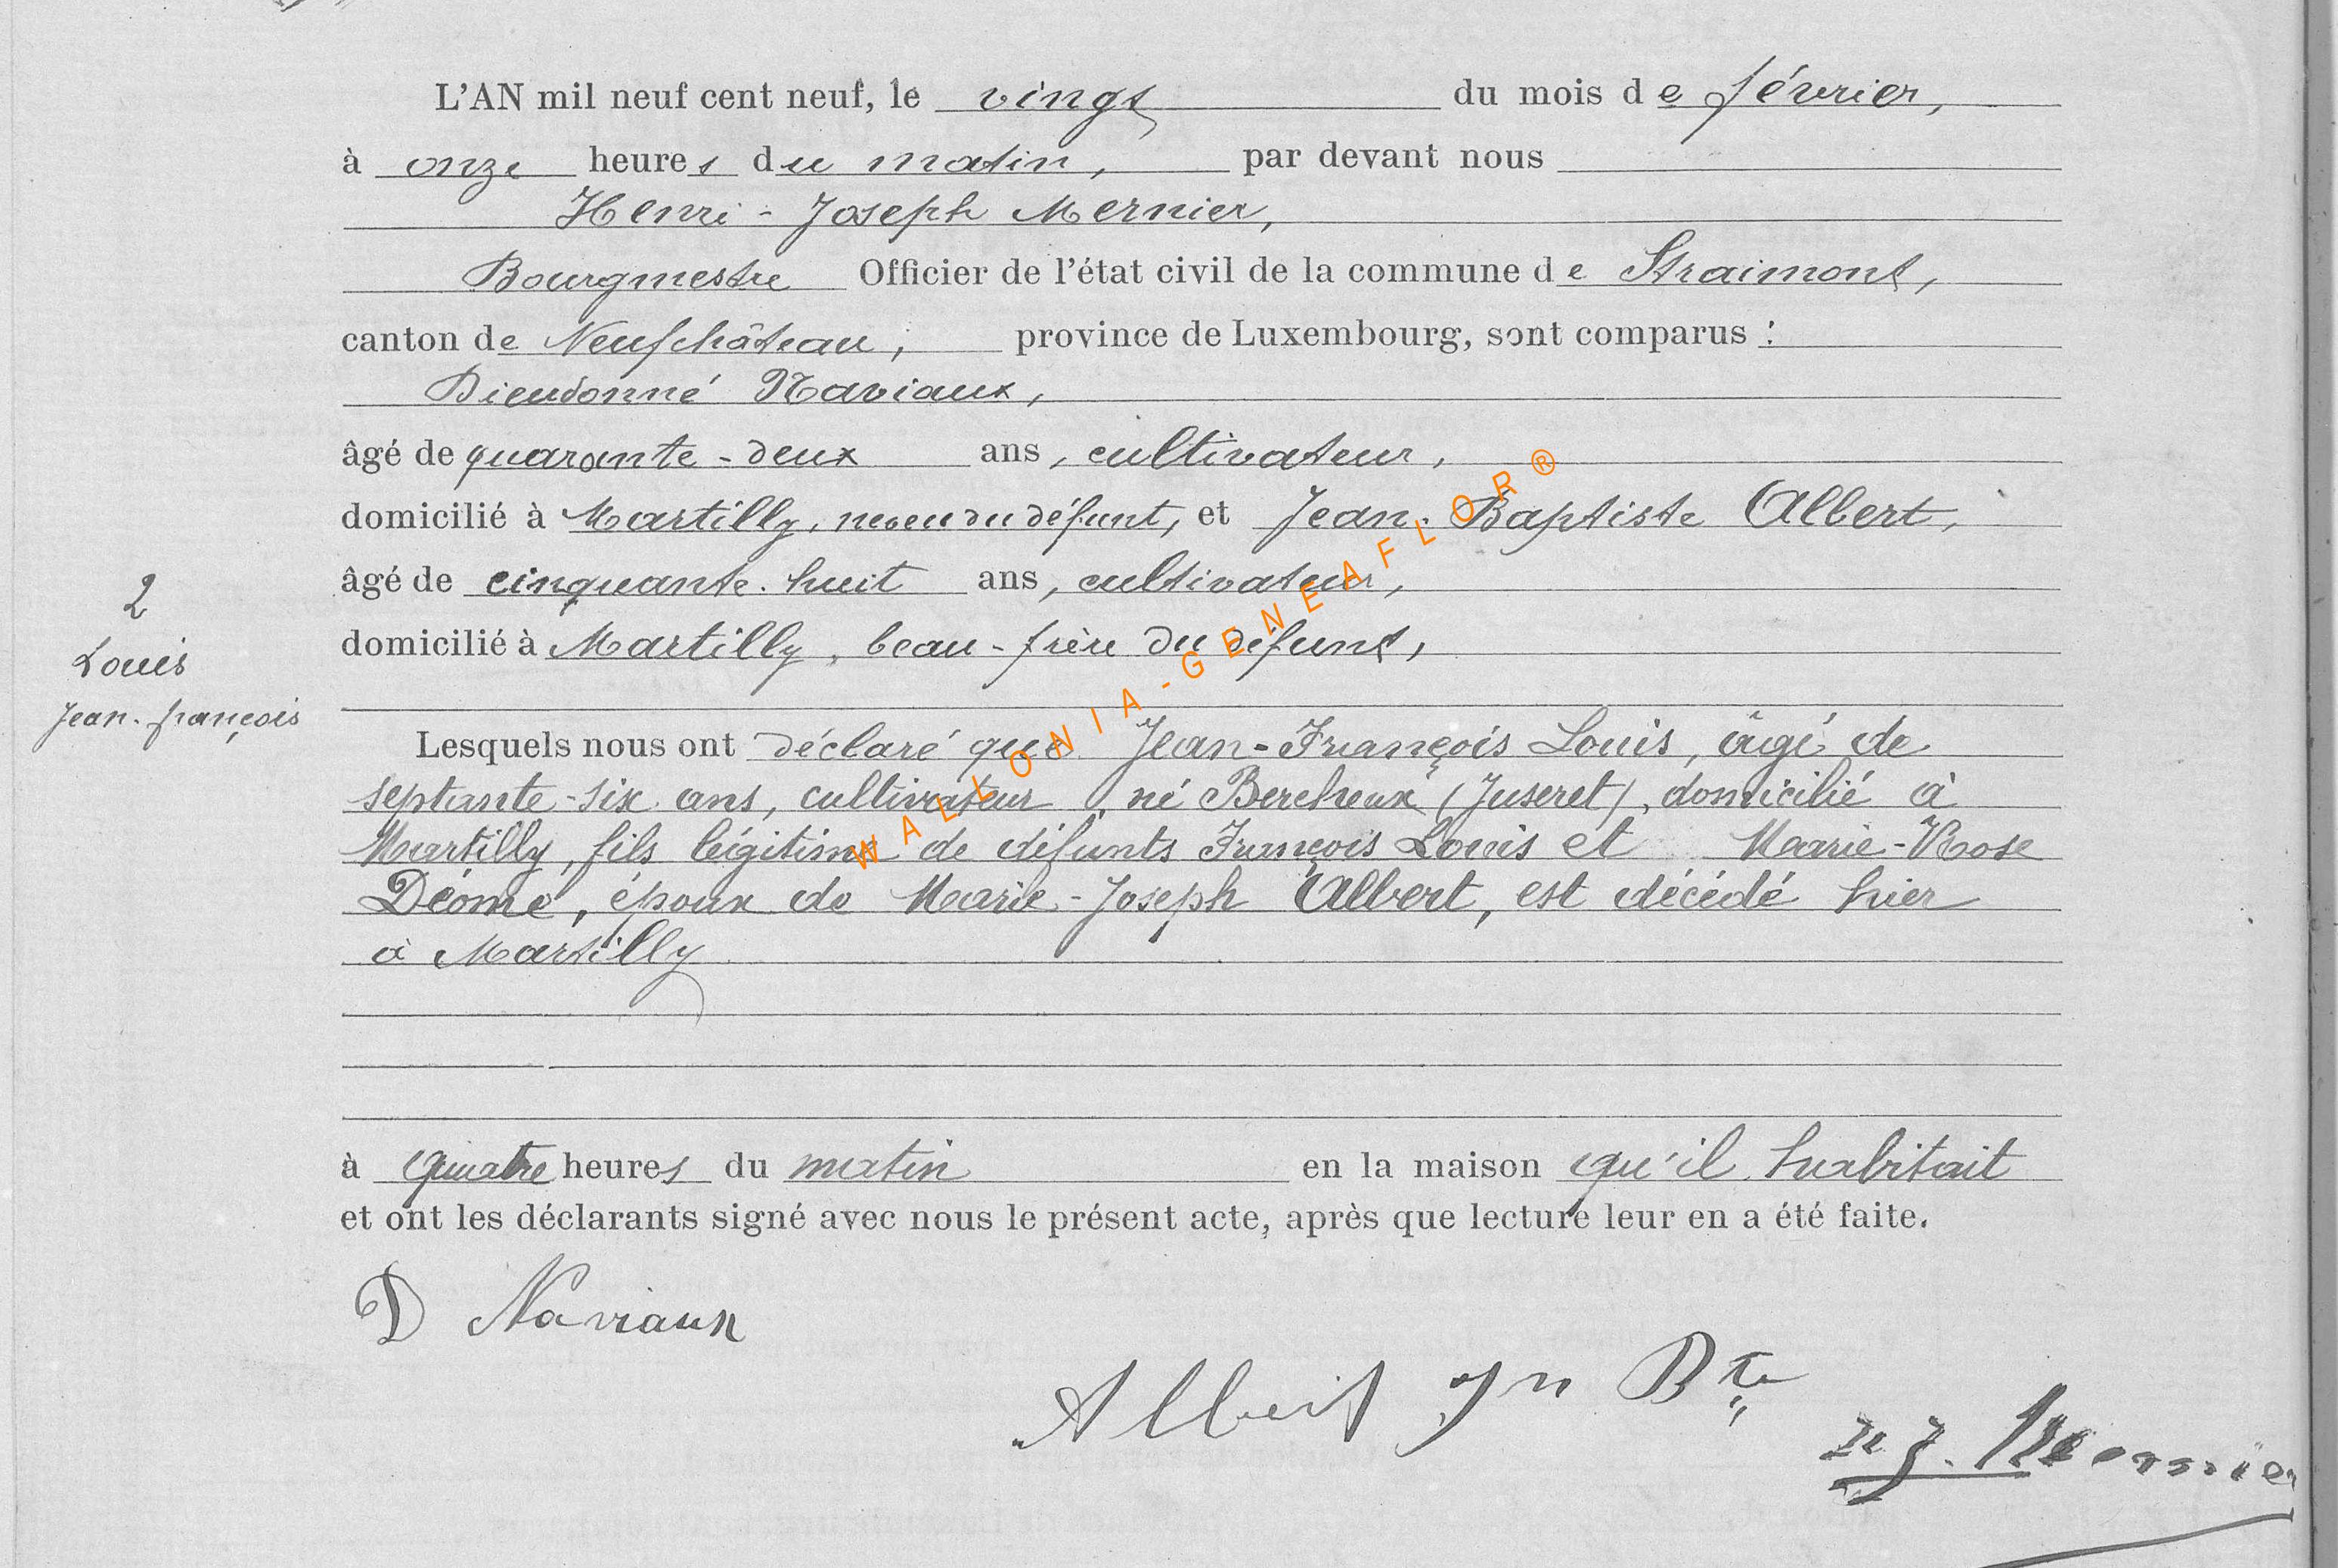 L'AN mil neuf cent neuf, le vingt du mois de février,
à onze heures du matin, par devant nous
Henri-Joseph Mernier,
Bourgmestre Officier de l'état civil de la commune de Straimont,
canton de Neufchâteau, province de Luxembourg, sont comparus :
Dieudonné Naviaux,
âgé de quarante-deux ans, cultivateur,
domicilié à Martilly, neveu du défunt, et Jean-Baptiste Albert,
âgé de cinquante-huit ans, cultivateur,
domicilié à Martilly, beau-frère du défunt,
2
Louis
Jean-françois
Lesquels nous ont déclaré que Jean-François Louis, âgé de
septante-six ans, cultivateur, né Bercheux (Juseret), domicilié à
Martilly, fils légitime de défunts François Louis et Marie-Rose
Déome, époux de Marie-Joseph Albert, est décédé hier
à Martilly
à quatre heures du matin en la maison qu'il habitait
et ont les déclarants signé avec nous le présent acte, après que lecture leur en a été faite.
D Naviaux
Albert Jn Bte
H J. Mernier
WALLONIA-GENEAFLOR®